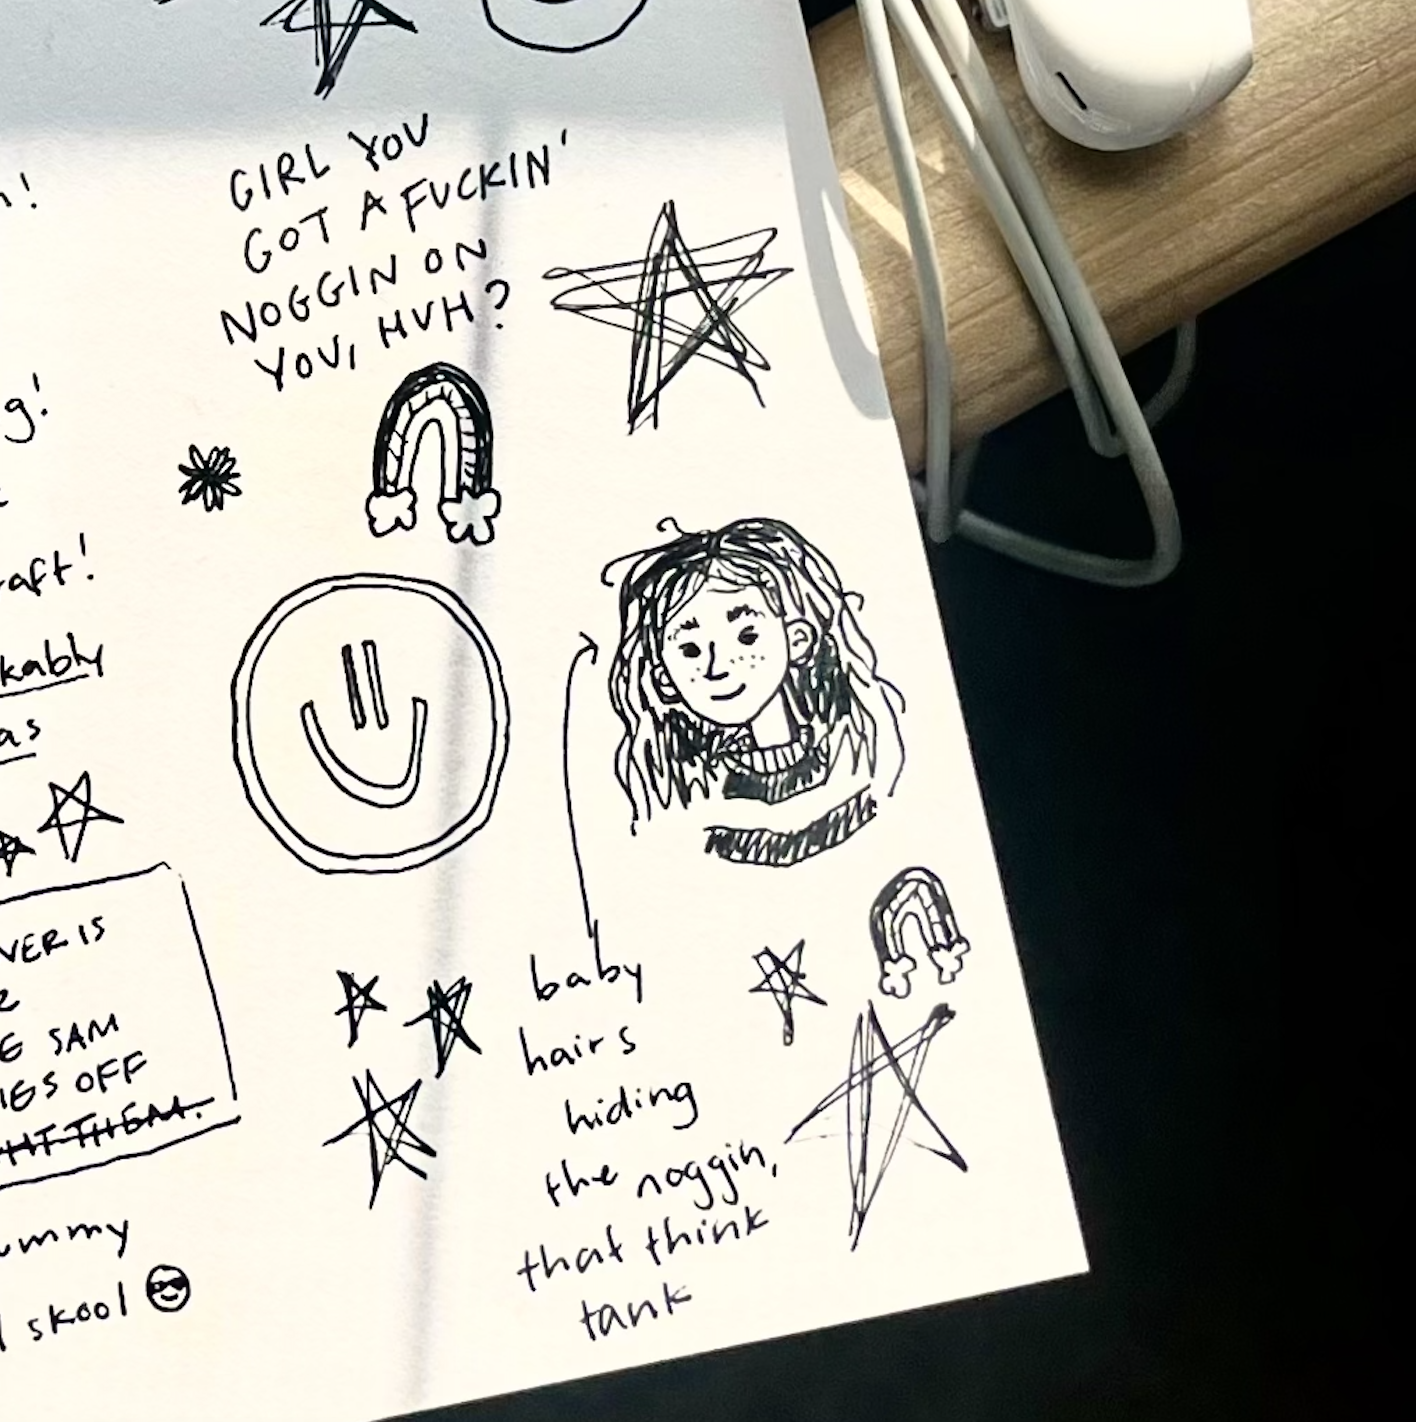 GIRL YOU
GOT A FUCKIN'
NOGGIN ON
YOU, HUH?
g!
aft!
kably
as
VER IS
E SAM
IES OFF
HT THEM.
ummy
skool
baby
hairs
hiding
the noggin,
that think
tank